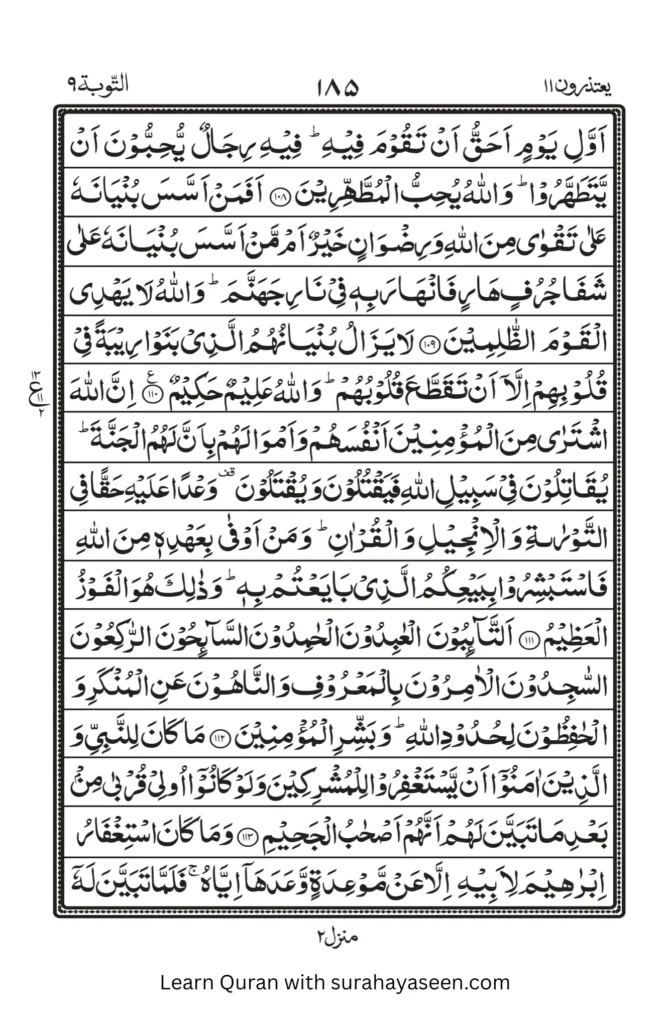 یعتذرون۱۱ ۱۸۵ التّوبة۹
اَوَّلِ یَوۡمٍ اَحَقُّ اَنۡ تَقُوۡمَ فِیۡهِ ؕ فِیۡهِ رِجَالٌ یُّحِبُّوۡنَ اَنۡ
یَّتَطَهَّرُوۡا ؕ وَاللّٰهُ یُحِبُّ الۡمُطَّهِّرِیۡنَ ﴿۱۰۸﴾ اَفَمَنۡ اَسَّسَ بُنۡیَانَهٗ
عَلٰی تَقۡوٰی مِنَ اللّٰهِ وَرِضۡوَانٍ خَیۡرٌ اَمۡ مَّنۡ اَسَّسَ بُنۡیَانَهٗ عَلٰی
شَفَا جُرُفٍ هَارٍ فَانۡهَارَ بِهٖ فِیۡ نَارِ جَهَنَّمَ ؕ وَاللّٰهُ لَا یَهۡدِی
الۡقَوۡمَ الظّٰلِمِیۡنَ ﴿۱۰۹﴾ لَا یَزَالُ بُنۡیَانُهُمُ الَّذِیۡ بَنَوۡا رِیۡبَةً فِیۡ
قُلُوۡبِهِمۡ اِلَّاۤ اَنۡ تَقَطَّعَ قُلُوۡبُهُمۡ ؕ وَاللّٰهُ عَلِیۡمٌ حَكِیۡمٌ ﴿۱۱۰﴾ ع اِنَّ اللّٰهَ
۱۳ ع ۱۱ ۲
اشۡتَرٰی مِنَ الۡمُؤۡمِنِیۡنَ اَنۡفُسَهُمۡ وَاَمۡوَالَهُمۡ بِاَنَّ لَهُمُ الۡجَنَّةَ ؕ
یُقَاتِلُوۡنَ فِیۡ سَبِیۡلِ اللّٰهِ فَیَقۡتُلُوۡنَ وَیُقۡتَلُوۡنَ قف وَعۡدًا عَلَیۡهِ حَقًّا فِی
التَّوۡرٰىةِ وَالۡاِنۡجِیۡلِ وَالۡقُرۡاٰنِ ؕ وَمَنۡ اَوۡفٰی بِعَهۡدِهٖ مِنَ اللّٰهِ
فَاسۡتَبۡشِرُوۡا بِبَیۡعِكُمُ الَّذِیۡ بَایَعۡتُمۡ بِهٖ ؕ وَذٰلِكَ هُوَ الۡفَوۡزُ
الۡعَظِیۡمُ ﴿۱۱۱﴾ اَلتَّآئِبُوۡنَ الۡعٰبِدُوۡنَ الۡحٰمِدُوۡنَ السَّآئِحُوۡنَ الرّٰكِعُوۡنَ
السّٰجِدُوۡنَ الۡاٰمِرُوۡنَ بِالۡمَعۡرُوۡفِ وَالنَّاهُوۡنَ عَنِ الۡمُنۡكَرِ وَ
الۡحٰفِظُوۡنَ لِحُدُوۡدِ اللّٰهِ ؕ وَبَشِّرِ الۡمُؤۡمِنِیۡنَ ﴿۱۱۲﴾ مَا كَانَ لِلنَّبِیِّ وَ
الَّذِیۡنَ اٰمَنُوۡۤا اَنۡ یَّسۡتَغۡفِرُوۡا لِلۡمُشۡرِكِیۡنَ وَلَوۡ كَانُوۡۤا اُولِیۡ قُرۡبٰی مِنۡۢ
بَعۡدِ مَا تَبَیَّنَ لَهُمۡ اَنَّهُمۡ اَصۡحٰبُ الۡجَحِیۡمِ ﴿۱۱۳﴾ وَمَا كَانَ اسۡتِغۡفَارُ
اِبۡرٰهِیۡمَ لِاَبِیۡهِ اِلَّا عَنۡ مَّوۡعِدَةٍ وَّعَدَهَاۤ اِیَّاهُ ۚ فَلَمَّا تَبَیَّنَ لَهٗۤ
منزل۲
Learn Quran with surahayaseen.com